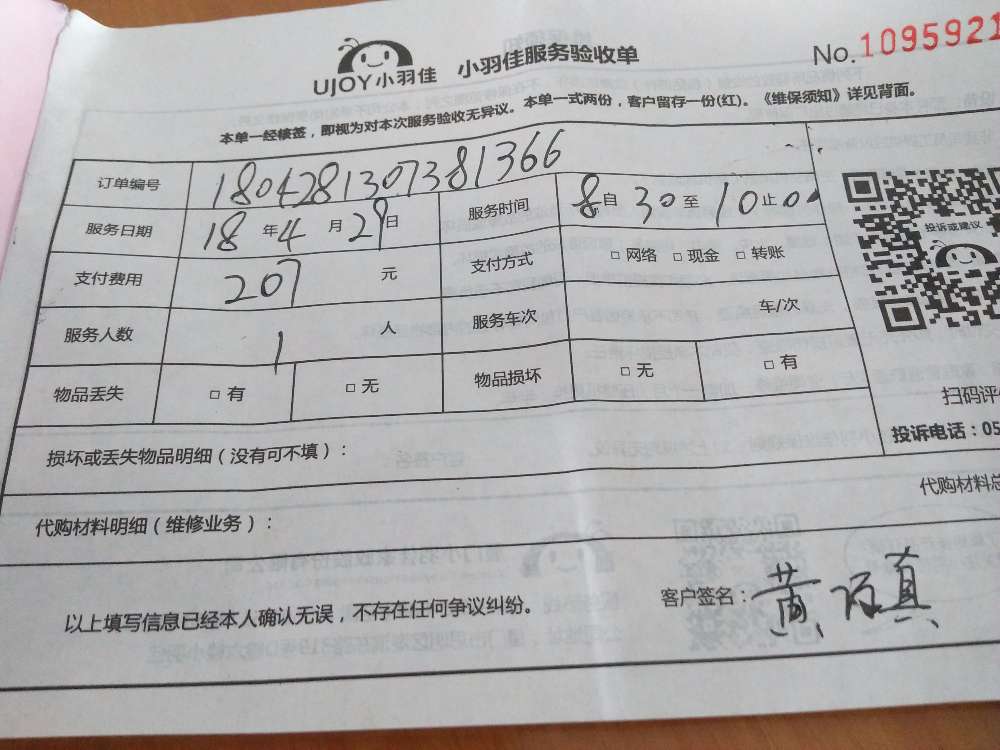 UJOY小羽佳 小羽佳服务验收单 No. 1095921
本单一经核签，即视为对本次服务验收无异议。本单一式两份，客户留存一份(红)。《维保须知》详见背面。
订单编号 180428130738１366
服务日期 18 年 4 月 29 日 服务时间 8 自 30 至 10 止 00
支付费用 207 元 支付方式 □ 网络 □ 现金 □ 转账
投诉或建议
服务人数 1 人 服务车次 车/次
物品丢失 □ 有 □ 无 物品损坏 □ 无 □ 有
扫码评
投诉电话：05
损坏或丢失物品明细（没有可不填）：
代购材料总
代购材料明细（维修业务）：
以上填写信息已经本人确认无误，不存在任何争议纠纷。 客户签名：黄 真